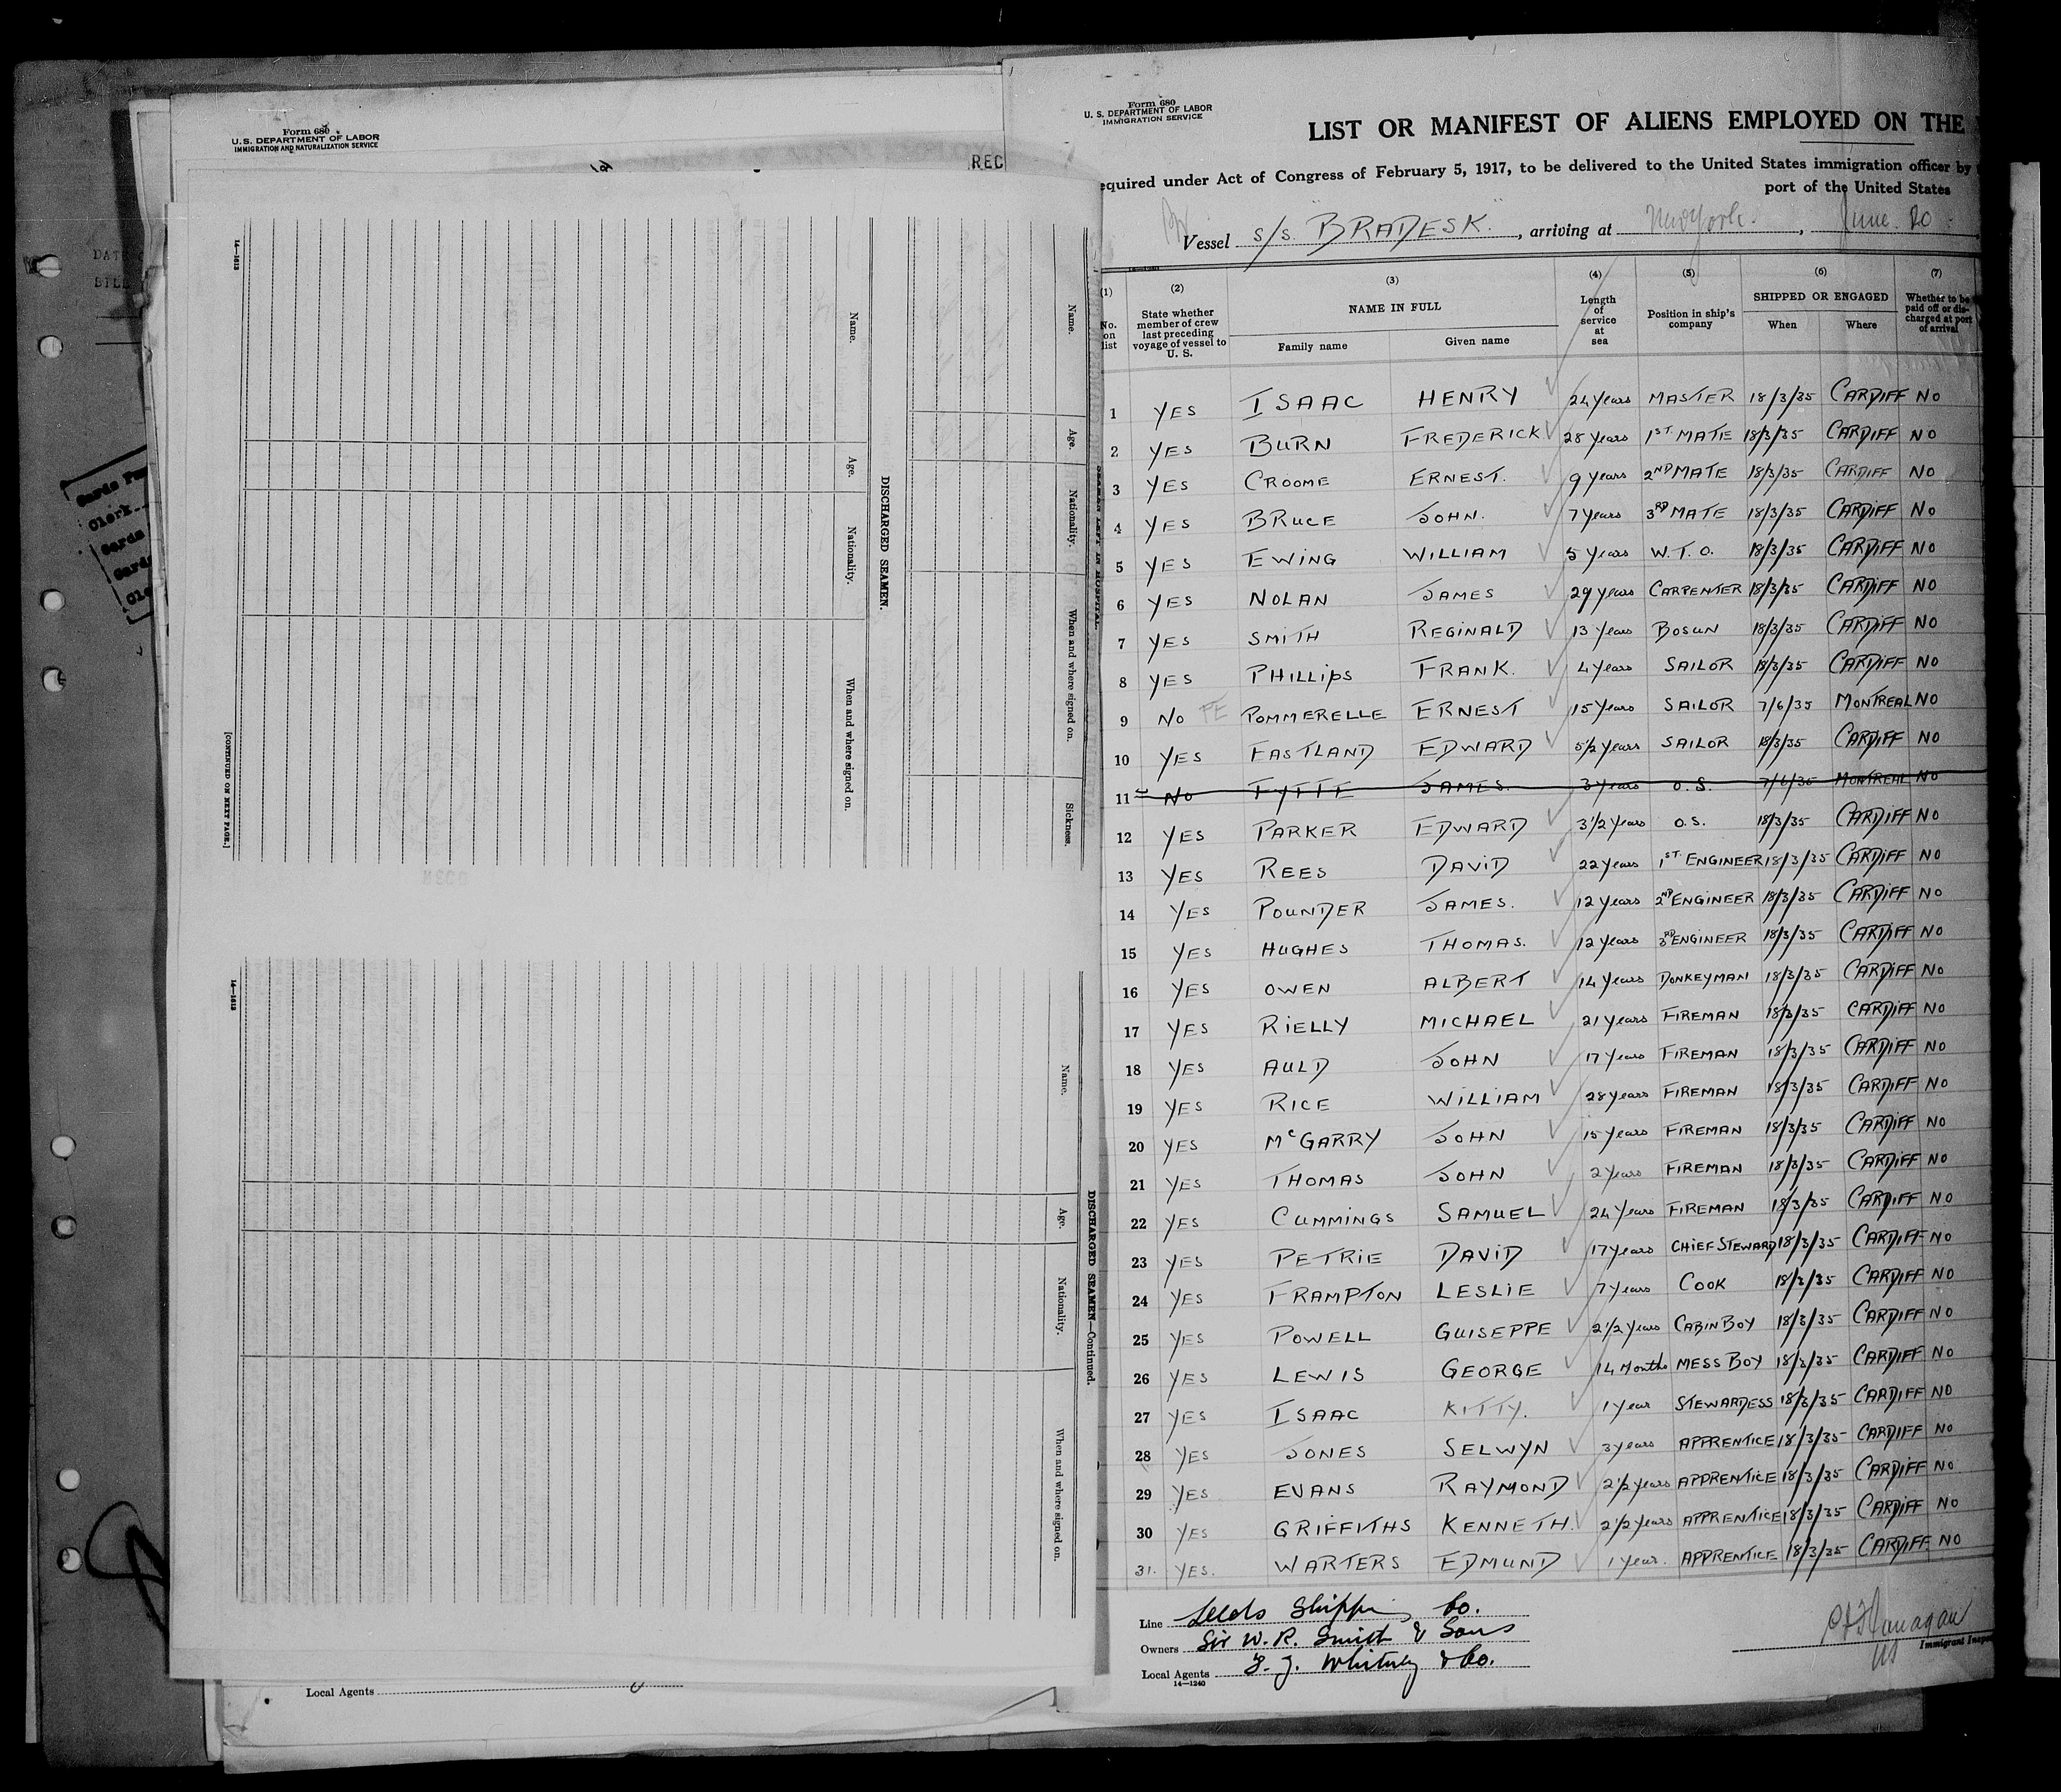 Form 680
U. S. DEPARTMENT OF LABOR
IMMIGRATION AND NATURALIZATION SERVICE
REC
14—1813
Name.
Age.
Nationality.
When and where signed on.
Sickness.
DISCHARGED SEAMEN.
Name.
Age.
Nationality.
When and where signed on.
[CONTINUED ON NEXT PAGE.]
14—1813
DISCHARGED SEAMEN—Continued.
Name.
Age.
Nationality.
When and where signed on.
Local Agents
Form 680
U. S. DEPARTMENT OF LABOR
IMMIGRATION SERVICE
LIST OR MANIFEST OF ALIENS EMPLOYED ON THE
equired under Act of Congress of February 5, 1917, to be delivered to the United States immigration officer by
port of the United States
Vessel S/S "BRADESK", arriving at New York, June 20
(1) (2) (3) (4) (5) (6) (7)
No. on list State whether member of crew last preceding voyage of vessel to U. S. NAME IN FULL Length of service at sea Position in ship's company SHIPPED OR ENGAGED Whether to be paid off or discharged at port of arrival
Family name Given name When Where
1 YES ISAAC HENRY 24 years MASTER 18/3/35 CARDIFF NO
2 YES BURN FREDERICK 28 years 1ST MATE 18/3/35 CARDIFF NO
3 YES CROOME ERNEST. 9 years 2ND MATE 18/3/35 CARDIFF NO
4 YES BRUCE JOHN. 7 years 3RD MATE 18/3/35 CARDIFF NO
5 YES EWING WILLIAM 5 years W.T.O. 18/3/35 CARDIFF NO
6 YES NOLAN JAMES 29 years CARPENTER 18/3/35 CARDIFF NO
7 YES SMITH REGINALD 13 years BOSUN 18/3/35 CARDIFF NO
8 YES PHILLIPS FRANK. 4 years SAILOR 18/3/35 CARDIFF NO
9 NO PE POMMERELLE ERNEST 15 years SAILOR 7/6/35 MONTREAL NO
10 YES EASTLAND EDWARD 5 1/2 years SAILOR 18/3/35 CARDIFF NO
11 NO FYFFE JAMES. 3 years O.S. 7/6/35 MONTREAL NO
12 YES PARKER EDWARD 3 1/2 years O.S. 18/3/35 CARDIFF NO
13 YES REES DAVID 22 years 1ST ENGINEER 18/3/35 CARDIFF NO
14 YES POUNDER JAMES. 12 years 2ND ENGINEER 18/3/35 CARDIFF NO
15 YES HUGHES THOMAS. 12 years 3RD ENGINEER 18/3/35 CARDIFF NO
16 YES OWEN ALBERT 14 years DONKEYMAN 18/3/35 CARDIFF NO
17 YES RIELLY MICHAEL 21 years FIREMAN 18/3/35 CARDIFF NO
18 YES AULD JOHN 17 years FIREMAN 18/3/35 CARDIFF NO
19 YES RICE WILLIAM 28 years FIREMAN 18/3/35 CARDIFF NO
20 YES McGARRY JOHN 15 years FIREMAN 18/3/35 CARDIFF NO
21 YES THOMAS JOHN 2 years FIREMAN 18/3/35 CARDIFF NO
22 YES CUMMINGS SAMUEL 24 years FIREMAN 18/3/35 CARDIFF NO
23 YES PETRIE DAVID 17 years CHIEF STEWARD 18/3/35 CARDIFF NO
24 YES FRAMPTON LESLIE 7 years COOK 18/3/35 CARDIFF NO
25 YES POWELL GUISEPPE 2 1/2 years CABIN BOY 18/3/35 CARDIFF NO
26 YES LEWIS GEORGE 14 Months MESS BOY 18/3/35 CARDIFF NO
27 YES ISAAC KITTY. 1 year STEWARDESS 18/3/35 CARDIFF NO
28 YES JONES SELWYN 3 years APPRENTICE 18/3/35 CARDIFF NO
29 YES EVANS RAYMOND 2 1/2 years APPRENTICE 18/3/35 CARDIFF NO
30 YES GRIFFITHS KENNETH. 2 1/2 years APPRENTICE 18/3/35 CARDIFF NO
31. YES. WARTERS EDMUND 1 year. APPRENTICE 18/3/35 CARDIFF NO
Line Leeds Shipping Co.
Owners Sir W. R. Smith & Sons
Local Agents F. J. Whitney & Co.
14—1240
Immigrant Inspe